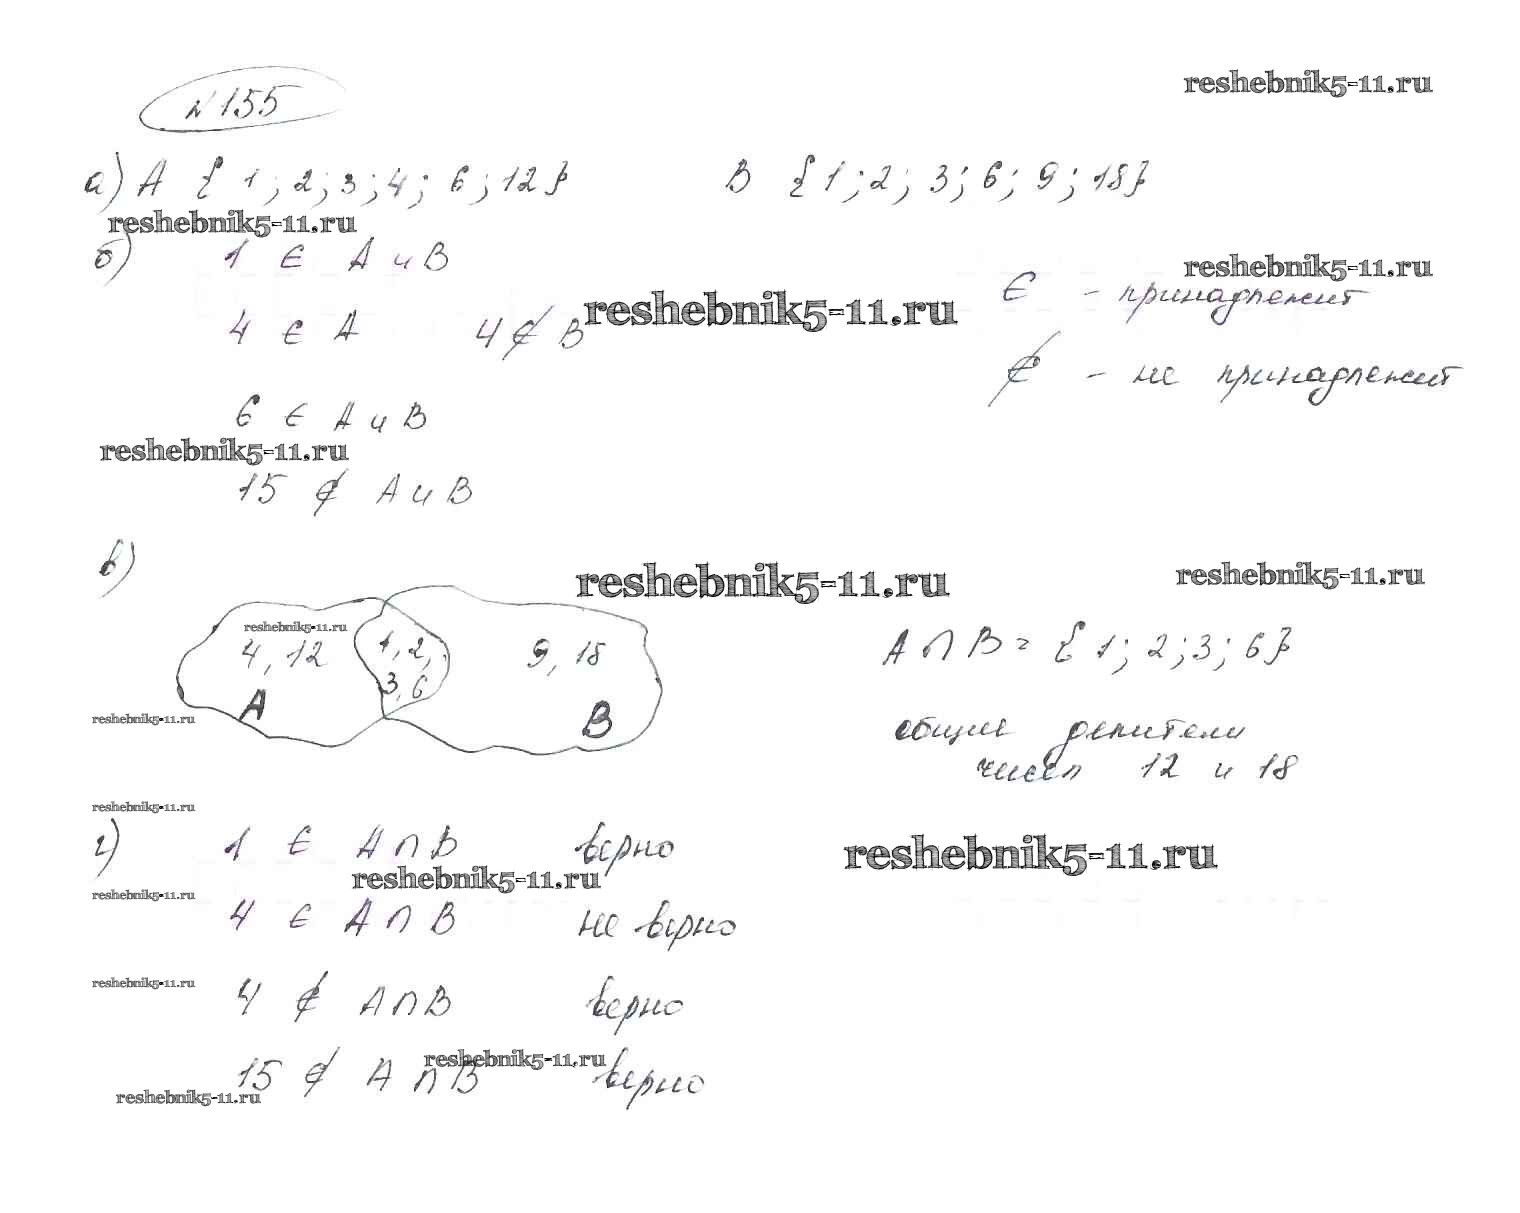 №155
reshebnik5-11.ru
а) A { 1 ; 2 ; 3 ; 4 ; 6 ; 12 } B { 1 ; 2 ; 3 ; 6 ; 9 ; 18 }
reshebnik5-11.ru
б) 1 ∈ A и B
reshebnik5-11.ru
∈ - принадлежит
reshebnik5-11.ru
4 ∈ A 4 ∉ B
∉ - не принадлежит
6 ∈ A и B
reshebnik5-11.ru
15 ∉ A и B
в)
reshebnik5-11.ru
reshebnik5-11.ru
reshebnik5-11.ru
4, 12 1, 2, 9, 18
3, 6
A B
A ∩ B = { 1 ; 2 ; 3 ; 6 }
reshebnik5-11.ru
общие делители
чисел 12 и 18
reshebnik5-11.ru
г) 1 ∈ A ∩ B верно
reshebnik5-11.ru
reshebnik5-11.ru
reshebnik5-11.ru
4 ∈ A ∩ B не верно
reshebnik5-11.ru
4 ∉ A ∩ B верно
reshebnik5-11.ru
15 ∉ A ∩ B верно
reshebnik5-11.ru